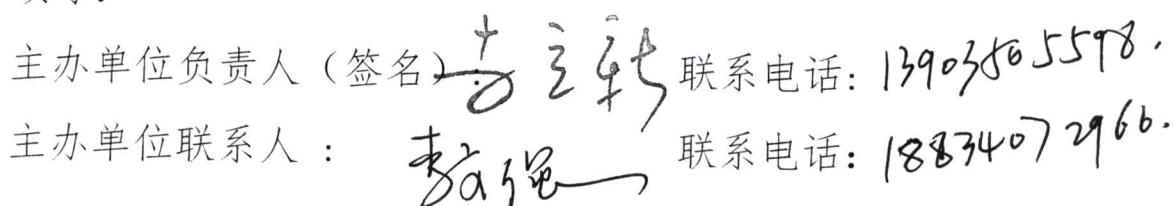 主办单位负责人（签名）：立新 联系电话：13903505598.
主办单位联系人： 强 联系电话：18834072966.